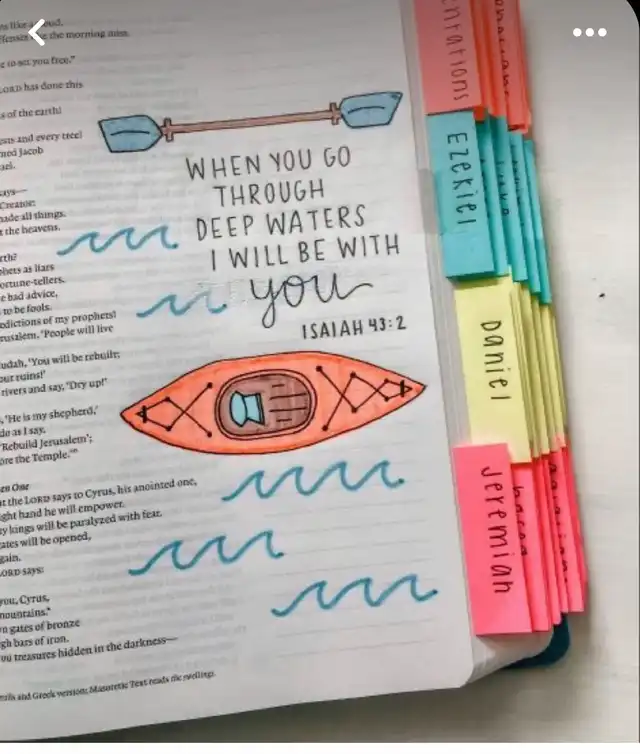 offenses like the morning mist.
to set you free."
LORD has done this
of the earth!
and every tree!
Jacob
says—
Creator:
made all things.
the heavens.
as liars
fortune-tellers.
bad advice,
to be fools.
predictions of my prophets!
Jerusalem, 'People will live
Judah, 'You will be rebuilt;
your ruins!'
rivers and say, 'Dry up!'
'He is my shepherd,'
do as I say.
'Rebuild Jerusalem';
the Temple.'"
the LORD says to Cyrus, his anointed one,
right hand he will empower.
kings will be paralyzed with fear.
gates will be opened,
again.
LORD says:
you, Cyrus,
mountains.
gates of bronze
bars of iron.
you treasures hidden in the darkness—
and Greek version; Masoretic Text reads the swellings.
WHEN YOU GO
THROUGH
DEEP WATERS
I WILL BE WITH
you
ISAIAH 43:2
Ezekiel
Daniel
Jeremiah